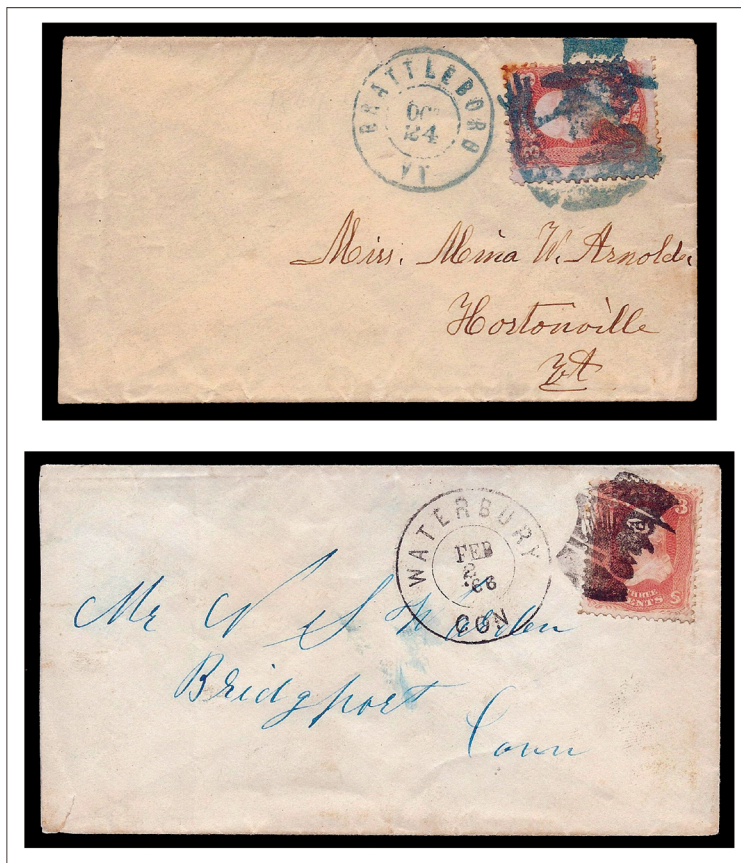 BRATTLEBORO
OCT
24
VT
3
Miss. Mina W. Arnolde
Hortonville
Vt
WATERBURY
FEB
2
'66
CON
3
THREE
CENTS
Mr N S
Bridgport
Conn